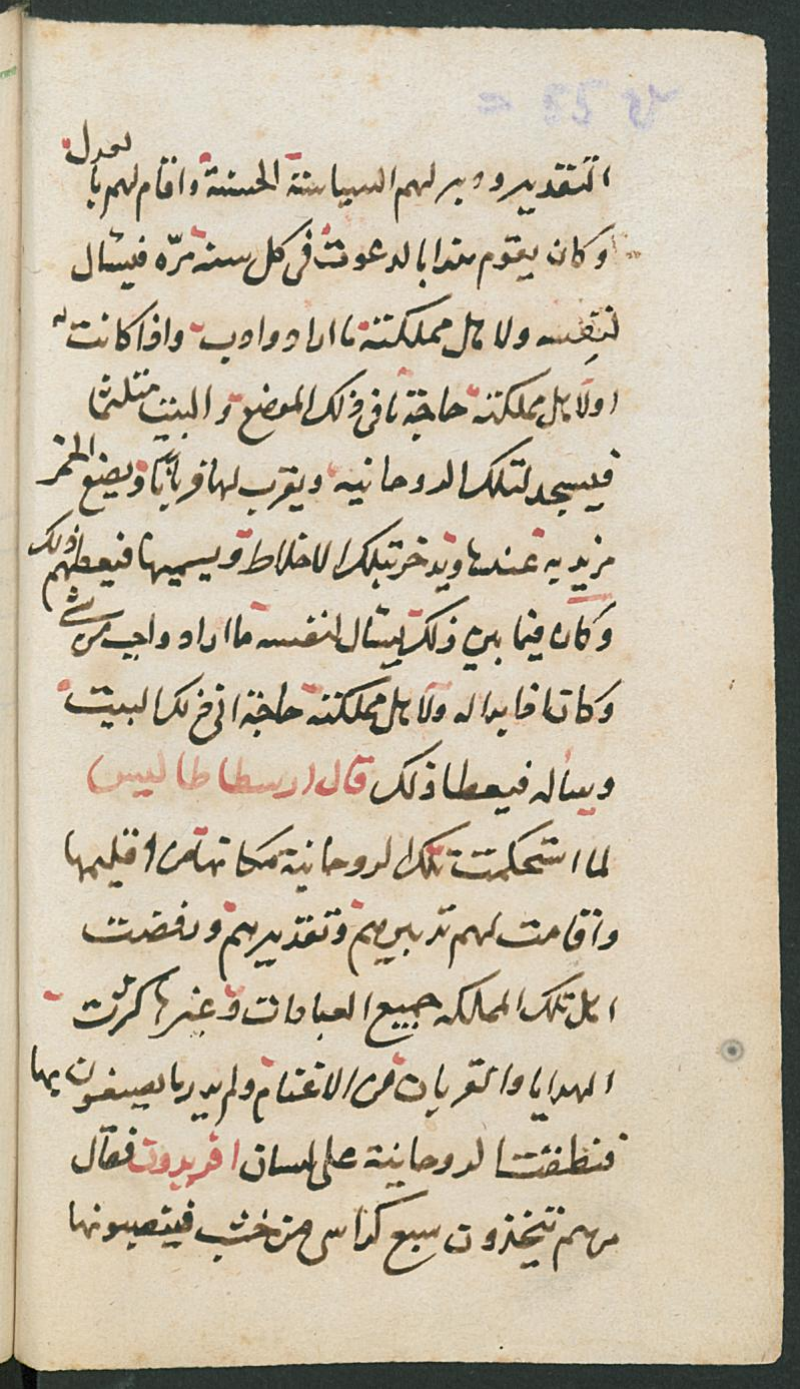 التقدير ودبر لهم السياسة الحسنة واقام لهم بالعدل
وكان يقوم بهذا بالدعوت فى كل سنه مرّه فيسال
لنفسه ولاهل مملكته ما اراد وادب واذا كانت له
اولاهل مملكته حاجة نافى ذلك الموضع والبيت مثلثا
فيسجد لتلك الروحانيه ويقرب لها قربانا ويضع الخمر
مزيديه عندها ويدخر بتلك الاخلاط ويسميها فيعطيهم ذلك
وكان فيما بين ذلك يسال لنفسه ما اراد واجب من شى
وكانا فابداله ولاهل مملكته حاجة اتى ذلك البيت
ويساله فيعطا ذلك قال ارسطاطاليس
لما استحكمت تلك الروحانية مكانها من اقليمها
واقامت لهم تدبيرهم وتقديرهم ورفضت
اهل تلك المملكه جميع العبادات وغيرها كثرت
الهدايا والقربان من الاغنام ولم يدر ما يصنعون بها
فنطقت الروحانية على لسان افريدون فقال
مرهم تتخذون سبع كراسى من خشب فينصبونها